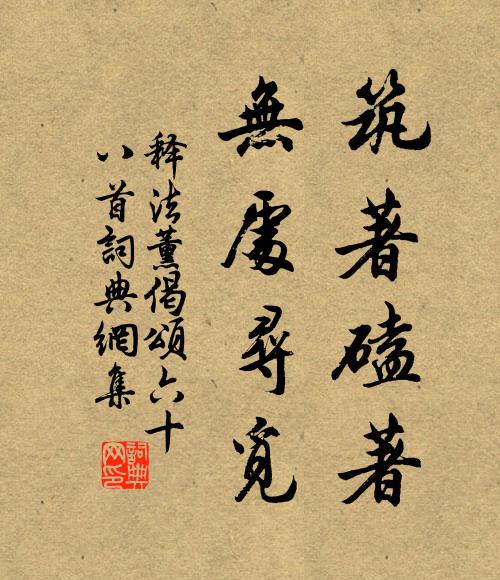 筑著磕著
無處尋覓
释法薰偈頌六十
八首詞典網集
詞典
网印